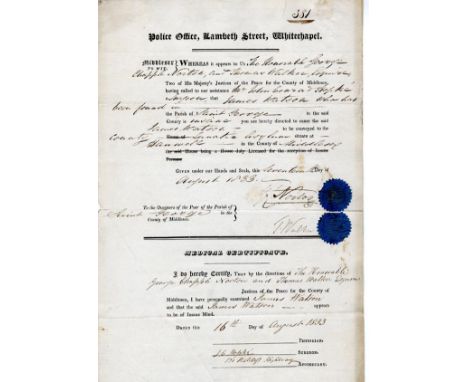 381
Police Office, Lambeth Street, Whitechapel.
Middlesex WHEREAS it appears to Us The Honorable George
to wit,
Chapple Norton, and Thomas Walker, Esquires
Two of His Majesty's Justices of the Peace for the County of Middlesex,
having called to our assistance Mr John
Surgeon that James Watson who has
been found in
the Parish of Saint George in the said
County is insane you are hereby directed to cause the said
James Watson to be conveyed to the
County Lunatic Asylum situate at
Hanwell in the County of Middlesex
the said House being a House duly Licensed for the reception of Insane
Persons
GIVEN under our Hands and Seals, this Seventeenth Day of
August 1833.
Norton
To the Overseers of the Poor of the Parish of
Saint George in the
County of Middlesex.
T Walker
MEDICAL CERTIFICATE.
I do hereby Certify, THAT by the directions of The Honorable
George Chapple Norton and Thomas Walker Esquires
Justices of the Peace for the County of
Middlesex, I have personally examined James Watson
and that the said James Watson appears
to be of Insane Mind.
DATED THE 16th Day of August 1833
PHYSICIAN.
SURGEON.
APOTHECARY.